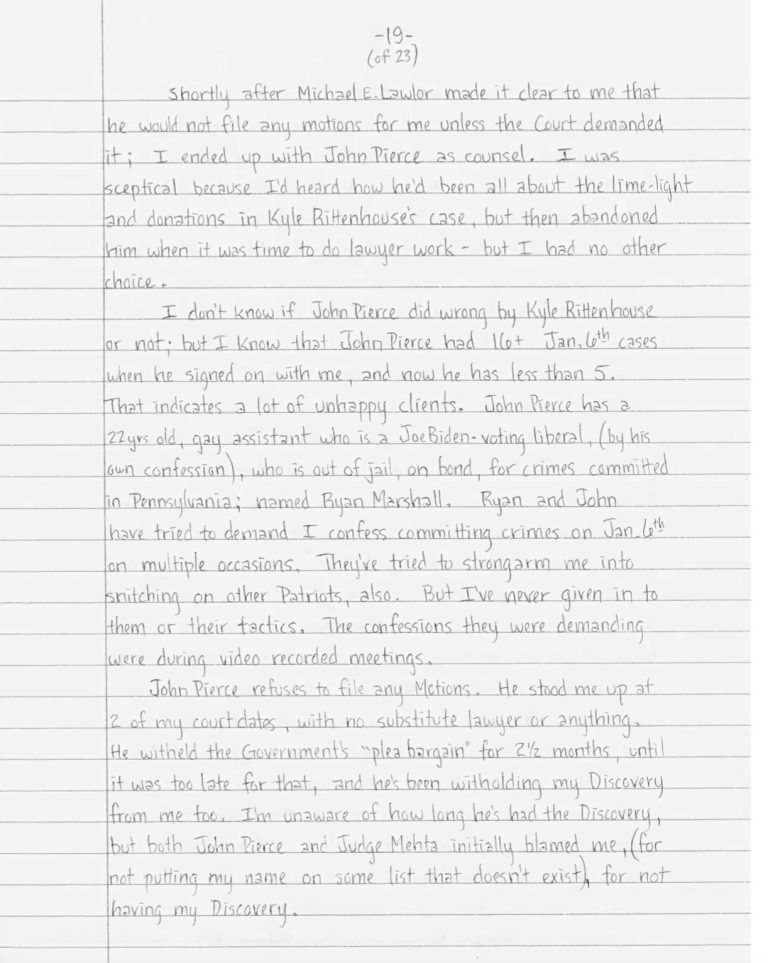 -19-
(of 23)
Shortly after Michael E. Lawlor made it clear to me that
he would not file any motions for me unless the Court demanded
it; I ended up with John Pierce as counsel. I was
sceptical because I'd heard how he'd been all about the lime-light
and donations in Kyle Rittenhouse's case, but then abandoned
him when it was time to do lawyer work - but I had no other
choice.
I don't know if John Pierce did wrong by Kyle Rittenhouse
or not; but I know that John Pierce had 16+ Jan. 6th cases
when he signed on with me, and now he has less than 5.
That indicates a lot of unhappy clients. John Pierce has a
22yrs old, gay assistant who is a Joe Biden-voting liberal, (by his
own confession), who is out of jail, on bond, for crimes committed
in Pennsylvania; named Ryan Marshall. Ryan and John
have tried to demand I confess committing crimes on Jan. 6th
on multiple occasions. They've tried to strongarm me into
snitching on other Patriots, also. But I've never given in to
them or their tactics. The confessions they were demanding
were during video recorded meetings.
John Pierce refuses to file any Motions. He stood me up at
2 of my court dates, with no substitute lawyer or anything.
He witheld the Government's "plea bargain" for 2½ months, until
it was too late for that, and he's been witholding my Discovery
from me too. I'm unaware of how long he's had the Discovery,
but both John Pierce and Judge Mehta initially blamed me, (for
not putting my name on some list that doesn't exist), for not
having my Discovery.